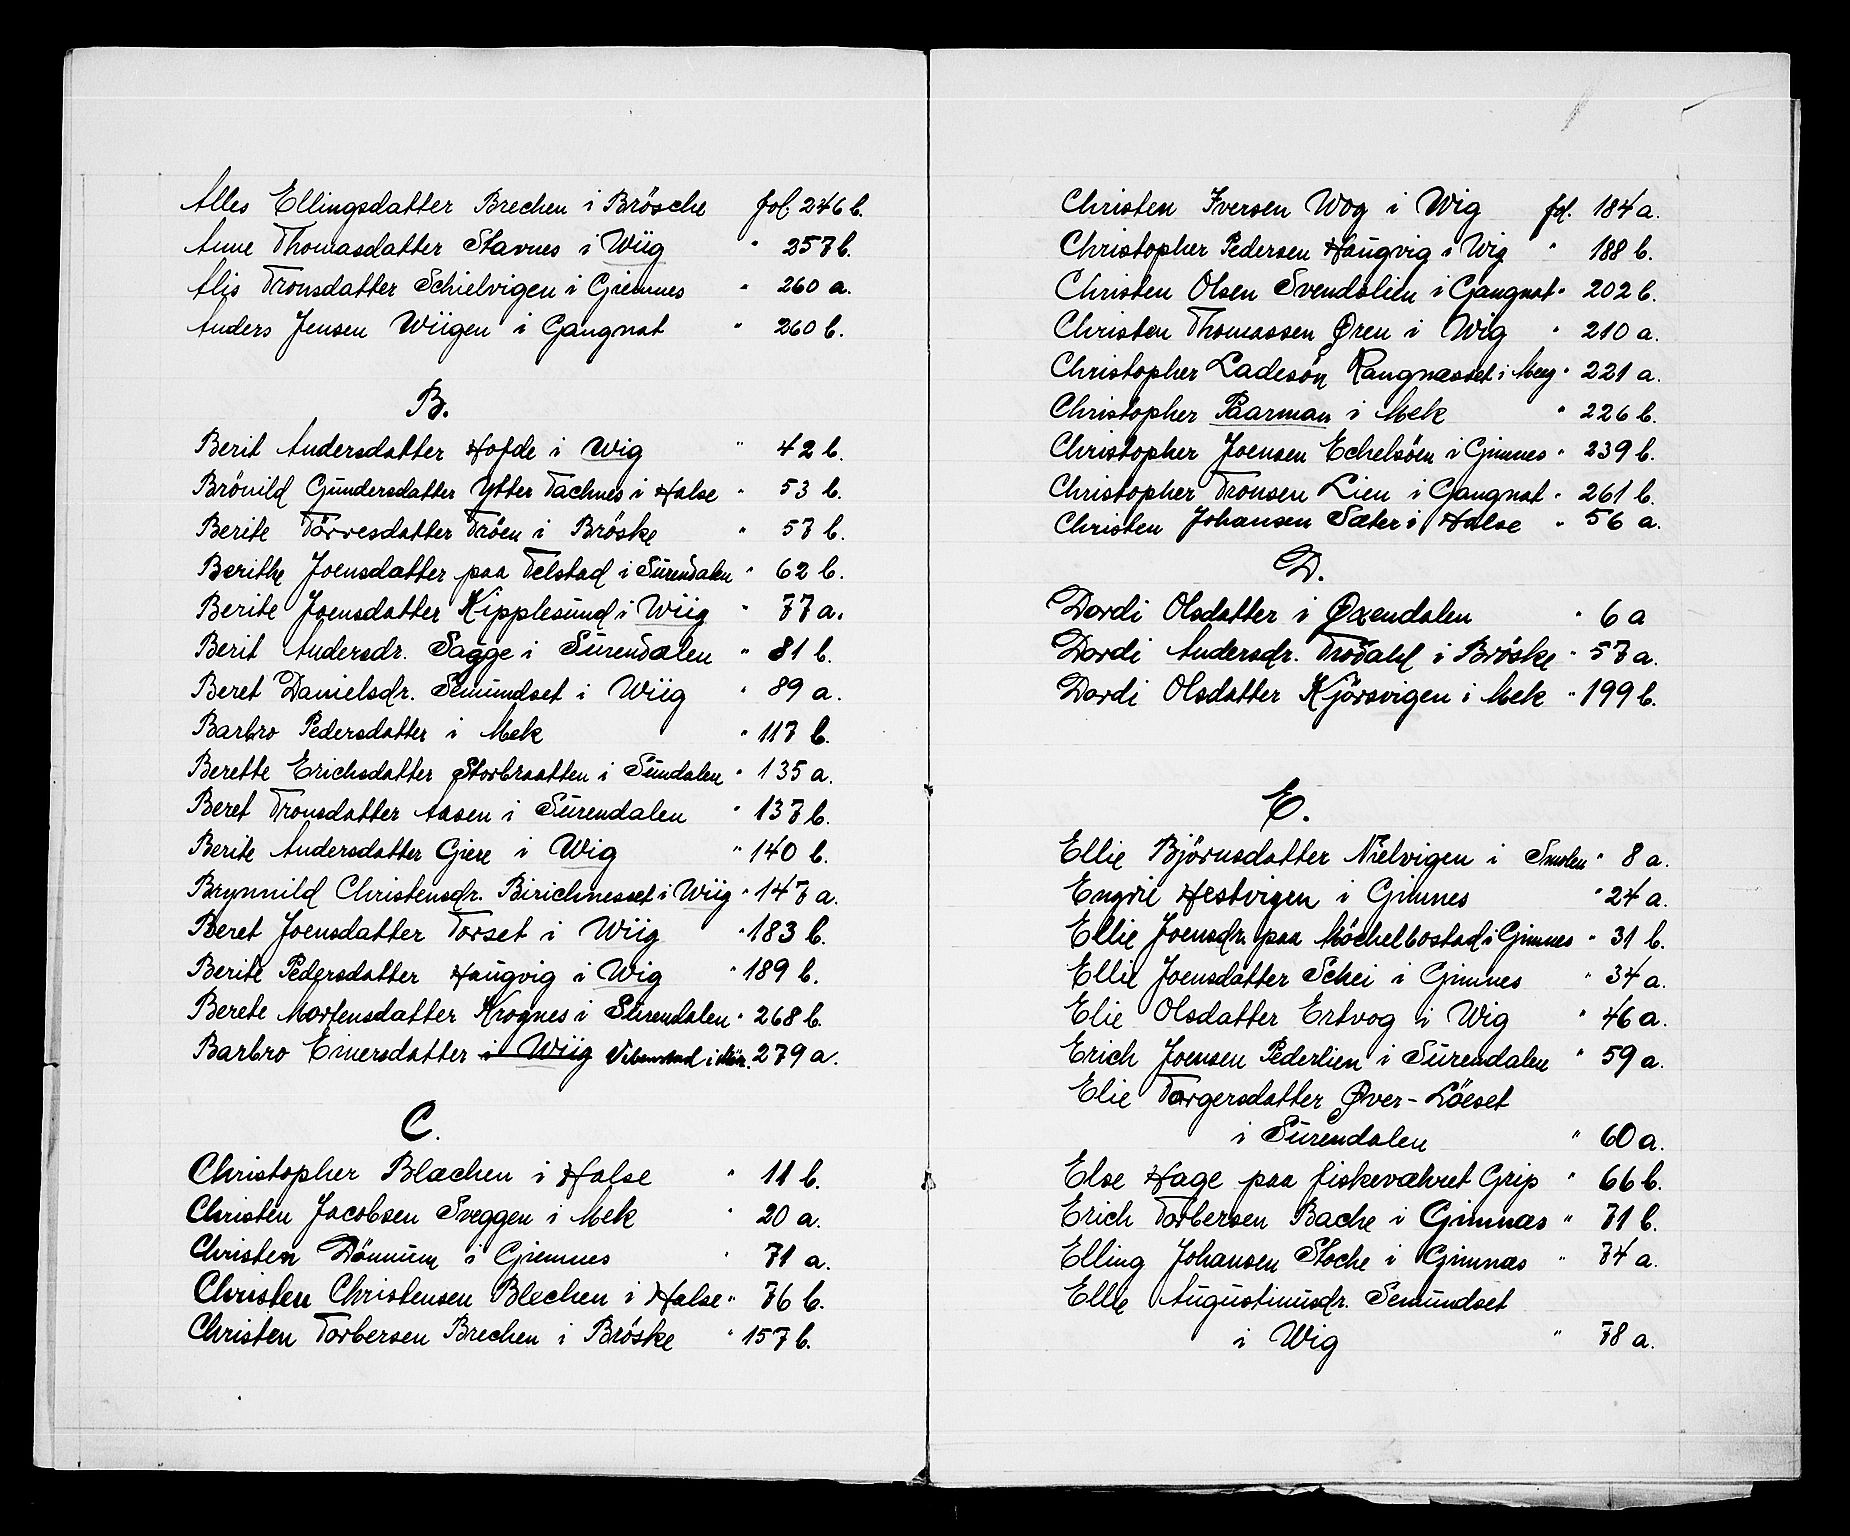 Alles Ellingsdatter Brechen i Brösche fol. 246 b.
Anne Thomasdatter Stavnes i Wiig " 257 b.
Alis Tronsdatter Schielvigen i Giemnes " 260 a.
Anders Jensen Wiigen i Gangnat " 260 b.
B.
Berit Andersdatter Hofde i Wig " 42 b.
Brönild Gundersdatter Ytter Tachnes i Halse " 53 b.
Berite Törresdatter Tröen i Bröske " 57 b.
Berithe Joensdatter paa Telstad i Surendalen " 62 b.
Berite Joensdatter Kipplesund i Wiig " 77 a.
Berit Andersdr. Sagge i Surendalen " 81 b.
Beret Danielsdr. Semundset i Wiig " 89 a.
Barbro Pedersdatter i Mek " 117 b.
Berette Erichsdatter Storbraatten i Sundalen " 135 a.
Beret Tronsdatter Aasen i Surendalen " 137 b.
Berite Andersdatter Giere i Wig " 140 b.
Brynnild Christensdr. Birichnesset i Wiig " 147 a.
Beret Joensdatter Torset i Wiig " 183 b.
Berite Pedersdatter Haugvig i Wig " 189 b.
Berete Mortensdatter Krognes i Surendalen " 268 b.
Barbro Emersdatter i Wiig 279 a.
C.
Christopher Blachen i Halse " 11 b.
Christen Jacobsen Sveggen i Mek " 20 a.
Christen Dönnum i Giemnes " 71 a.
Christen Christensen Blechen i Halse " 76 b.
Christen Torbersen Brechen i Bröske " 157 b.
Christen Iversen Wog i Wig fol. 184 a.
Christopher Pedersen Haugvig i Wig " 188 b.
Christen Olsen Svendslien i Gangnat " 202 b.
Christen Thomassen Øren i Wig " 210 a.
Christopher Ladesön Rangnæsset i Meg " 221 a.
Christopher Paarman i Mek " 226 b.
Christopher Joensen Echelsöen i Gimnes " 239 b.
Christopher Tronsen Lien i Gangnat " 261 b.
Christen Johansen Sæter i Halse " 56 a.
D.
Dordi Olsdatter i Øxendalen " 6 a
Dordi Andersdr. Trödahl i Bröske " 57 a.
Dordi Olsdatter Kjörsvigen i Mek " 199 b.
E.
Ellie Björnsdatter Nielvigen i Smolen " 8 a.
Engril Hestvigen i Gimnes " 24 a.
Ellie Joensdr. paa Möchelbostad i Gimnes " 31 b.
Ellie Joensdatter Schei i Gimnes " 34 a.
Elie Olsdatter Ertvog i Wig " 46 a.
Erich Joensen Pederlien i Surendalen " 59 a.
Elie Torgersdatter Øver-Löeset
i Surendalen " 60 a.
Else Hage paa fiskeværet Grip " 66 b.
Erich Torbersen Bache i Gimnæs " 71 b.
Elling Johansen Stoche i Gimnæs " 74 a.
Elle Augustinusdr. Semundset
i Wig " 78 a.